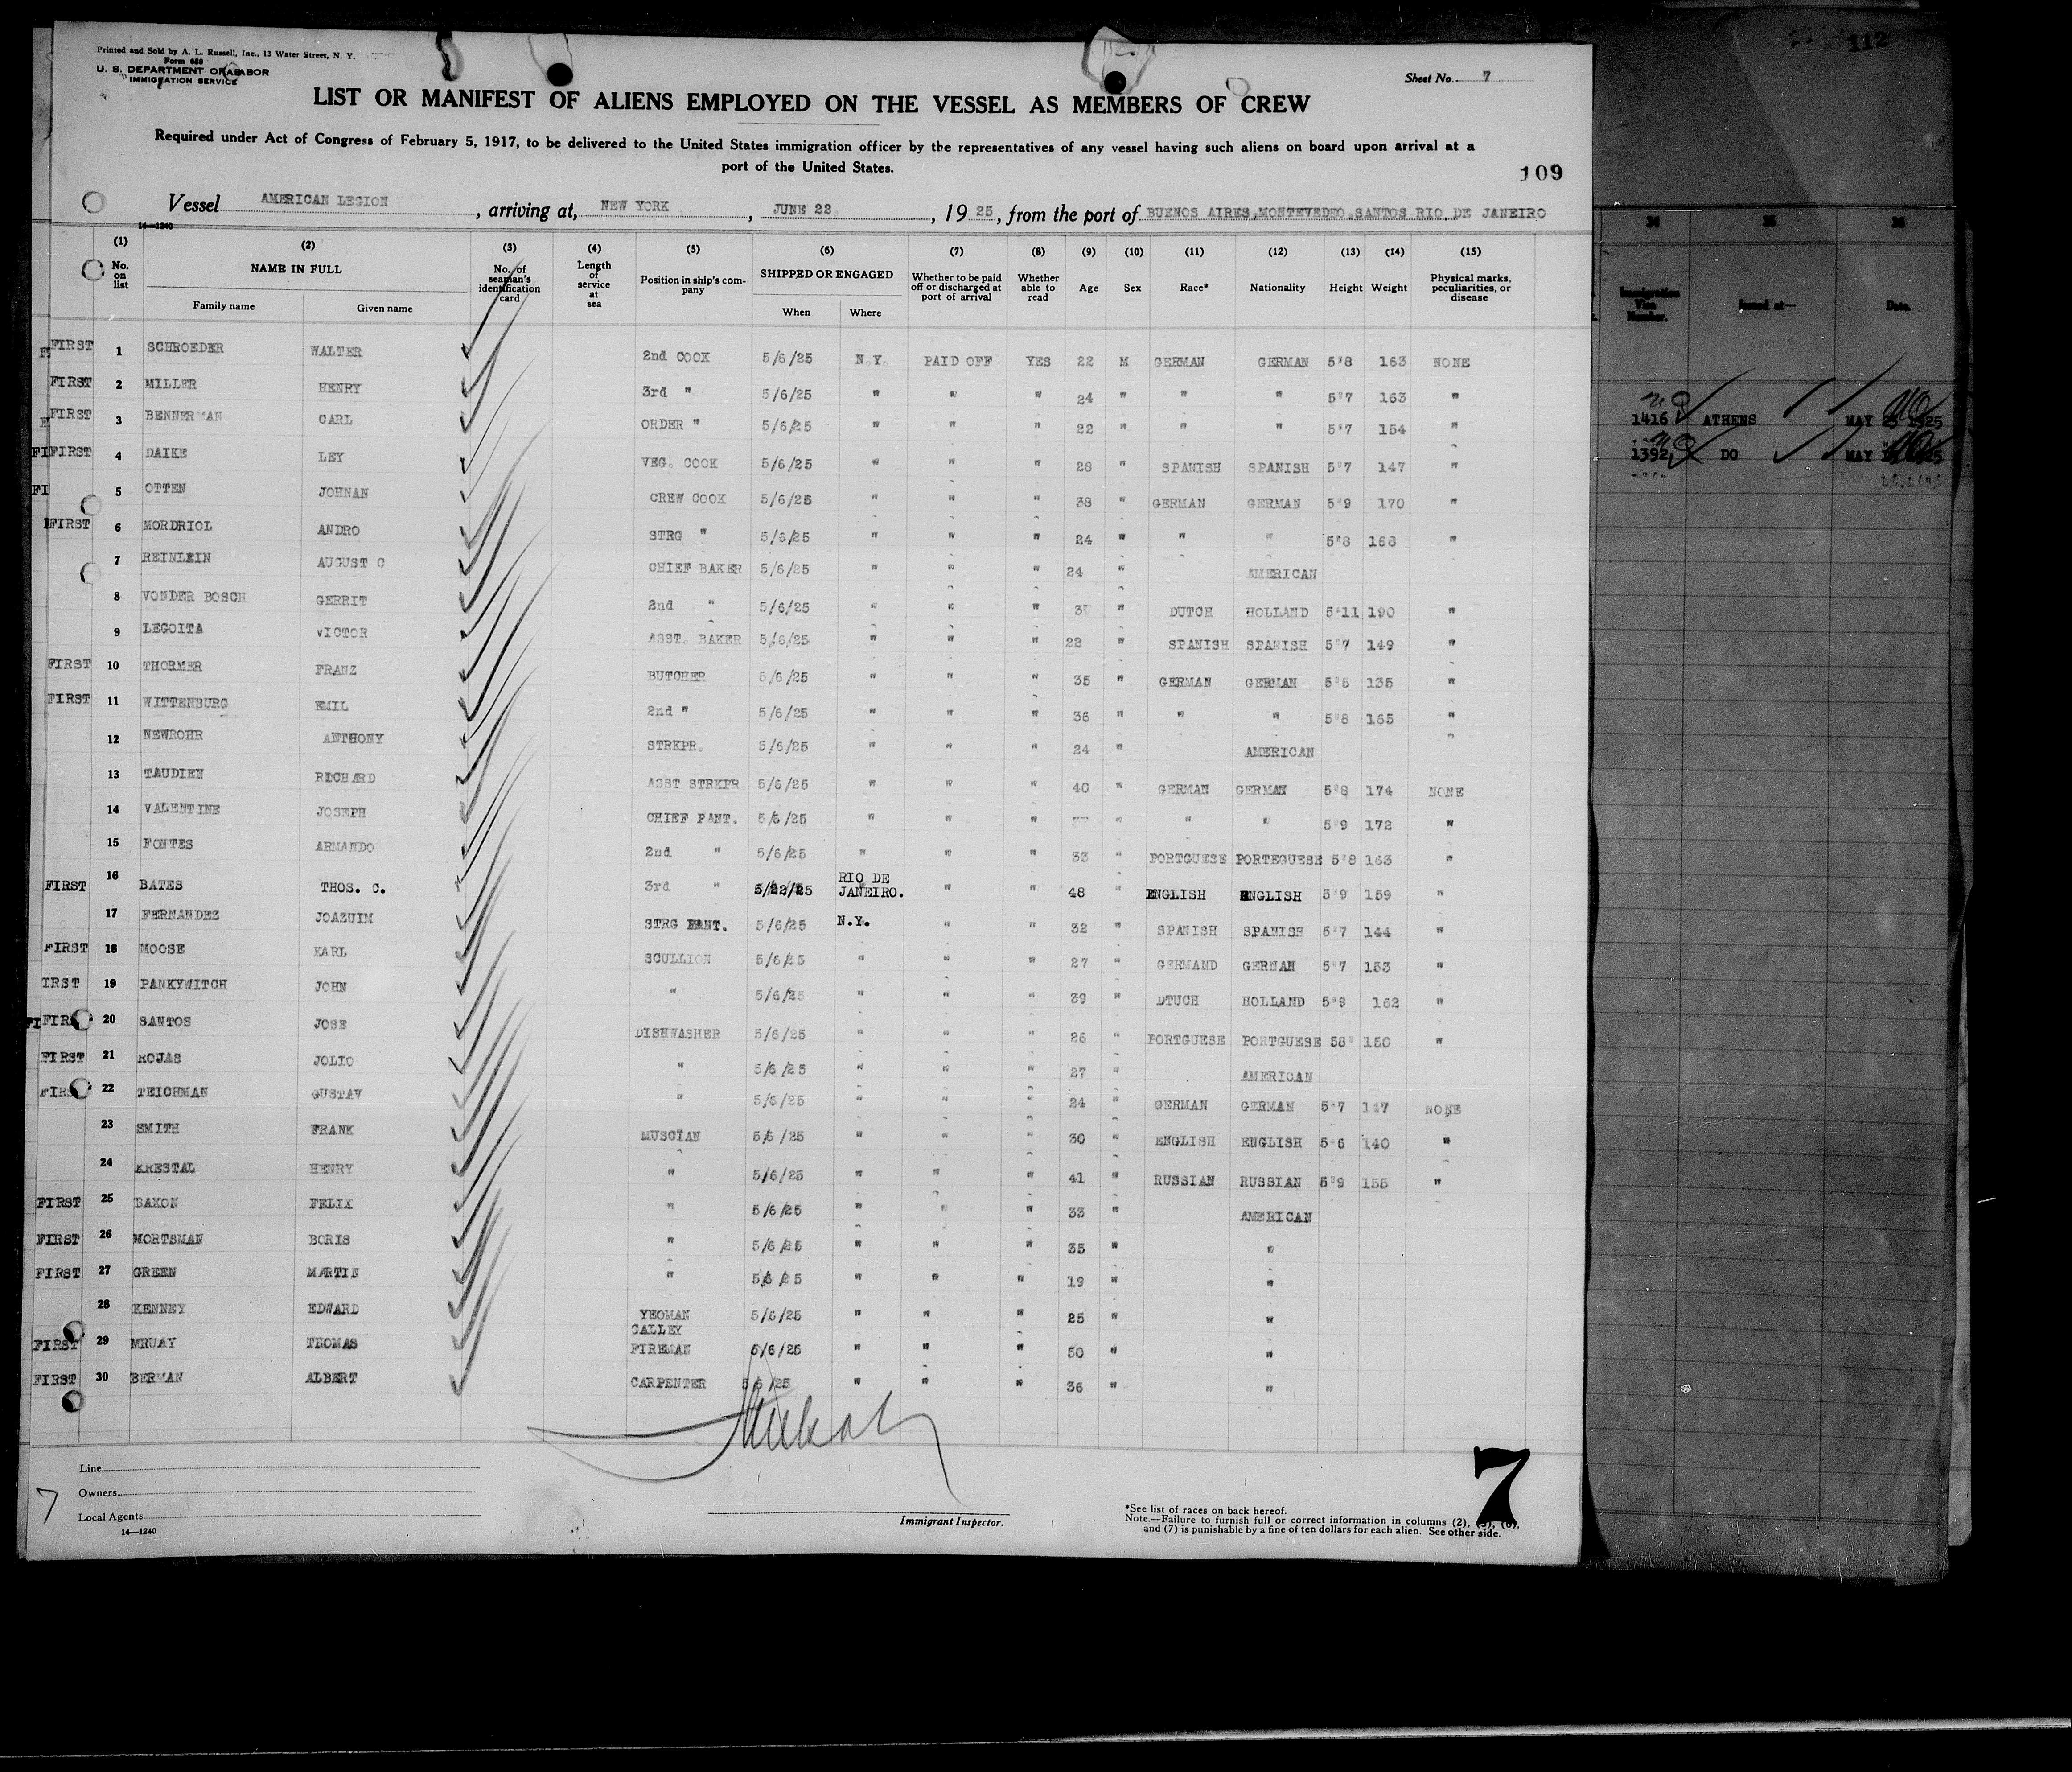 Printed and Sold by A. L. Russell, Inc., 13 Water Street, N. Y.
Form 680
U. S. DEPARTMENT OF LABOR
IMMIGRATION SERVICE
Sheet No. 7
LIST OR MANIFEST OF ALIENS EMPLOYED ON THE VESSEL AS MEMBERS OF CREW
Required under Act of Congress of February 5, 1917, to be delivered to the United States immigration officer by the representatives of any vessel having such aliens on board upon arrival at a
port of the United States.
109
Vessel AMERICAN LEGION, arriving at, NEW YORK, JUNE 22, 19 25, from the port of BUENOS AIRES, MONTEVEDEO SANTOS RIO DE JANEIRO
14—1240
(1) No. on list
(2) NAME IN FULL Family name Given name
(3) No. of seaman's identification card
(4) Length of service at sea
(5) Position in ship's company
(6) SHIPPED OR ENGAGED When Where
(7) Whether to be paid off or discharged at port of arrival
(8) Whether able to read
(9) Age
(10) Sex
(11) Race*
(12) Nationality
(13) Height
(14) Weight
(15) Physical marks, peculiarities, or disease
FIRST 1 SCHROEDER WALTER 2nd COOK 5/6/25 N.Y. PAID OFF YES 22 M GERMAN GERMAN 5"8 163 NONE
FIRST 2 MILLER HENRY 3rd " 5/6/25 " " " 24 " " " 5"7 163 "
FIRST 3 BENNERMAN CARL ORDER " 5/6/25 " " " 22 " " " 5"7 154 "
FIRST 4 DAIKE LEY VEG. COOK 5/6/25 " " " 28 " SPANISH SPANISH 5"7 147 "
FI 5 OTTEN JOHNAN CREW COOK 5/6/25 " " " 38 " GERMAN GERMAN 5"9 170 "
FIRST 6 MORDRIOL ANDRO STRG " 5/6/25 " " " 24 " " " 5"8 168 "
7 REINLEIN AUGUST C CHIEF BAKER 5/6/25 " " " 24 " AMERICAN
8 VONDER BOSCH GERRIT 2nd " 5/6/25 " " " " DUTCH HOLLAND 5"11 190 "
9 LEGOITA VICTOR ASST. BAKER 5/6/25 " " " 22 " SPANISH SPANISH 5"7 149 "
FIRST 10 THORMER FRANZ BUTCHER 5/6/25 " " " 35 " GERMAN GERMAN 5"5 135 "
FIRST 11 WITTENBURG EMIL 2nd " 5/6/25 " " " 36 " " " 5"8 165 "
12 NEWROHR ANTHONY STRKPR. 5/6/25 " " " 24 " AMERICAN
13 TAUDIEN RICHARD ASST STRKPR 5/6/25 " " " 40 " GERMAN GERMAN 5"8 174 NONE
14 VALENTINE JOSEPH CHIEF PANT. 5/6/25 " " " " " " 5"9 172 "
15 FONTES ARMANDO 2nd " 5/6/25 " " " 33 " PORTGUESE PORTEGUESE 5"8 163 "
FIRST 16 BATES THOS. C. 3rd " 5/22/25 RIO DE JANEIRO. " " 48 " ENGLISH ENGLISH 5"9 159 "
17 FERNANDEZ JOAZUIM STRG PANT. 5/6/25 N.Y. " " 32 " SPANISH SPANISH 5"7 144 "
FIRST 18 MOOSE KARL SCULLION 5/6/25 " " " 27 " GERMAND GERMAN 5"7 153 "
IRST 19 PANKYWITCH JOHN " 5/6/25 " " " 39 " DTUCH HOLLAND 5"9 162 "
FIRS 20 SANTOS JOSE DISHWASHER 5/6/25 " " " 26 " PORTGUESE PORTGUESE 58" 150 "
FIRST 21 ROJAS JOLIO " 5/6/25 " " " 27 " AMERICAN
FIRS 22 TEICHMAN GUSTAV " 5/6/25 " " " 24 " GERMAN GERMAN 5"7 147 NONE
23 SMITH FRANK MUSCIAN 5/6/25 " " " 30 " ENGLISH ENGLISH 5"6 140 "
24 KRESTAL HENRY " 5/6/25 " " " 41 " RUSSIAN RUSSIAN 5"9 155 "
FIRST 25 SAXON FELIX " 5/6/25 " " " 33 " AMERICAN
FIRST 26 WORTSMAN BORIS " 5/6/25 " " " 35 " "
FIRST 27 GREEN MARTIN " 5/6/25 " " " 19 " "
28 KENNEY EDWARD YEOMAN 5/6/25 " " " 25 " "
FIRST 29 MRUAY THOMAS GALLEY FIREMAN 6/6/25 " " " 50 " "
FIRST 30 BERMAN ALBERT CARPENTER 5/6/25 " " " 36 " "
Line
Owners
Local Agents
14—1240
7
Immigrant Inspector.
*See list of races on back hereof.
Note.—Failure to furnish full or correct information in columns (2), (5), (6),
and (7) is punishable by a fine of ten dollars for each alien. See other side.
7
112
34 35 36
Immigration Visa Number. Issued at— Date.
1416 ATHENS MAY 25 1925
1392 DO MAY 1925